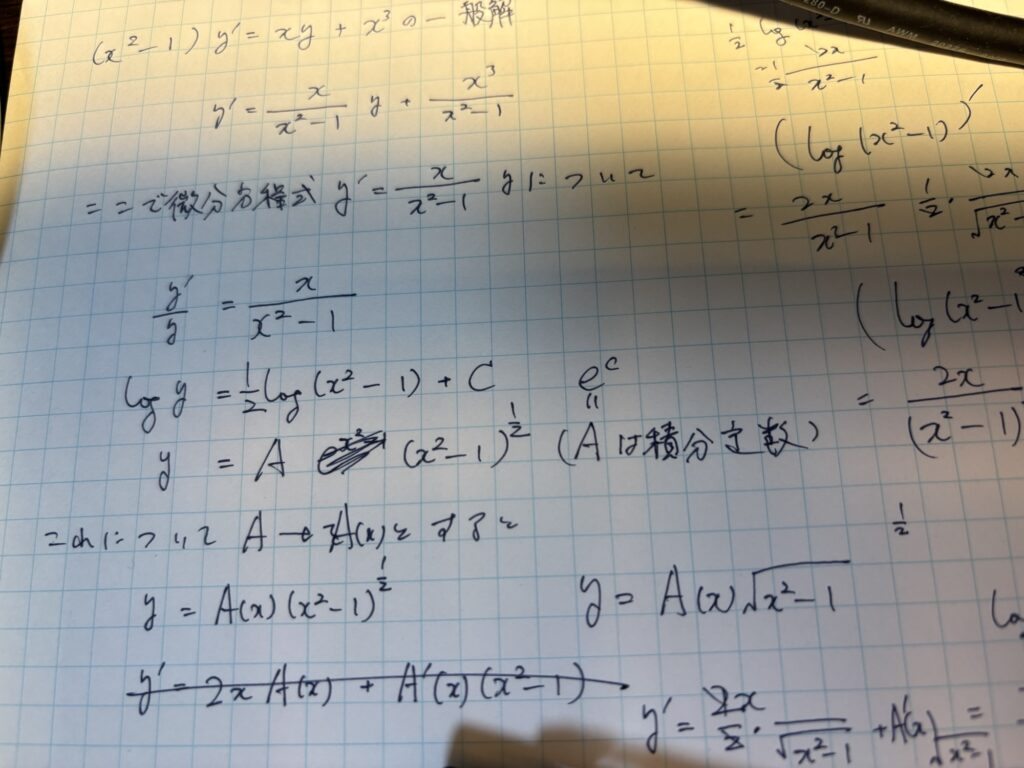 (x²-1) y' = xy + x³ の一般解
y' = x/(x²-1) y + x³/(x²-1)
ここで微分方程式 y' = x/(x²-1) y について
y'/y = x/(x²-1)
log y = 1/2 log(x²-1) + C
e^C
〃
y = A (x²-1)^(1/2) (Aは積分定数)
これについて A → A(x) とすると
y = A(x)(x²-1)^(1/2)
y = A(x)√(x²-1)
y' = 2x A(x) + A'(x)(x²-1)
y' = 2x/2 · 1/√(x²-1) + A'(x)√(x²-1) =
1/2 log
1/2 2x/(x²-1)
(log(x²-1))'
= 2x/(x²-1)
1/2 · 2x/√x²-
(log(x²-1
= 2x/(x²-1)
1/2